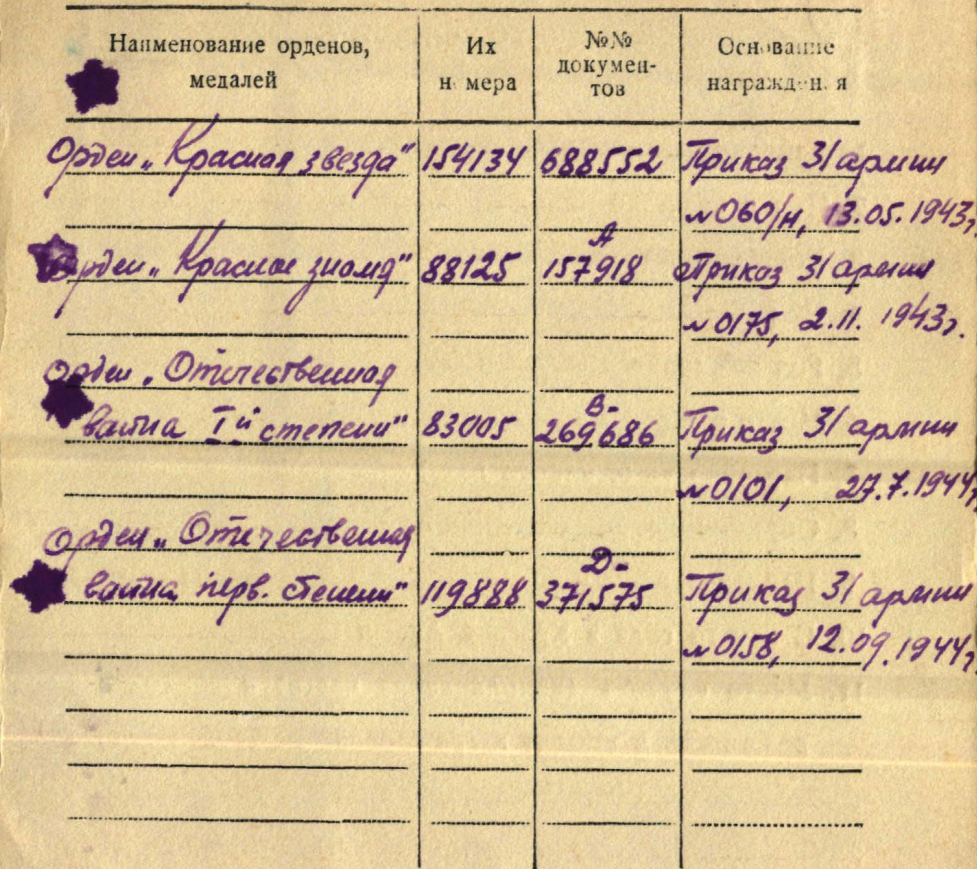 Наименование орденов, медалей
Их номера
№№ документов
Основание награждения
Орден „Красная звезда" 154134 688552 Приказ 31 армии
№060/н, 13.05.1943г.
А
Орден „Красное знамя" 88125 157918 Приказ 31 армии
№0175, 2.11.1943г.
Орден „Отечественная
В-
война I й степени" 83005 269686 Приказ 31 армии
№0101, 27.7.1944г
Орден „Отечественная
D-
война перв. степени" 119888 371575 Приказ 31 армии
№0158, 12.09.1944г